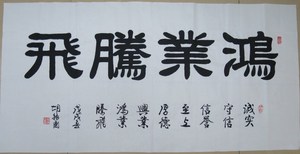 鴻業騰飛
誠实
守信
信誉
至上
厚德
興業
鴻業
騰飛
戊戌春